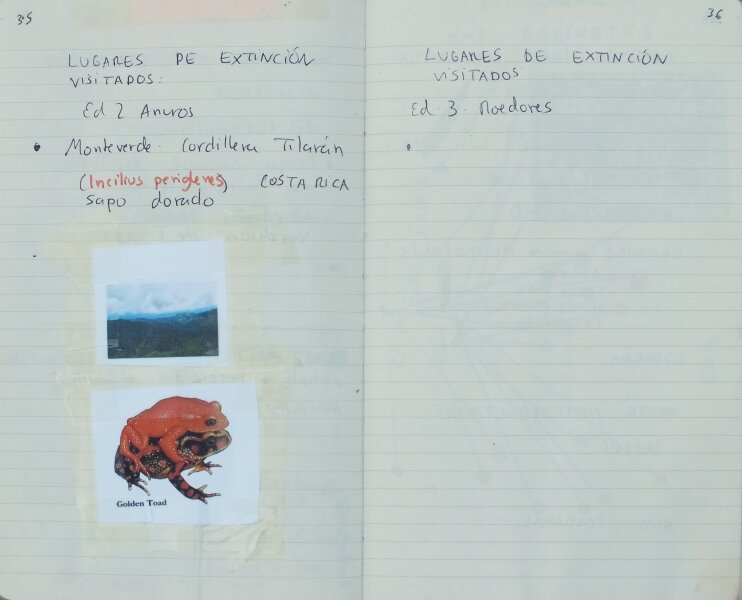 35
LUGARES DE EXTINCIÓN
VISITADOS:
Ed 2 Anuros
• Monteverde. Cordillera Tilarán
(Incilius perigleres) COSTA RICA
sapo dorado
Golden Toad
36
LUGARES DE EXTINCIÓN
VISITADOS
Ed. 3. Roedores